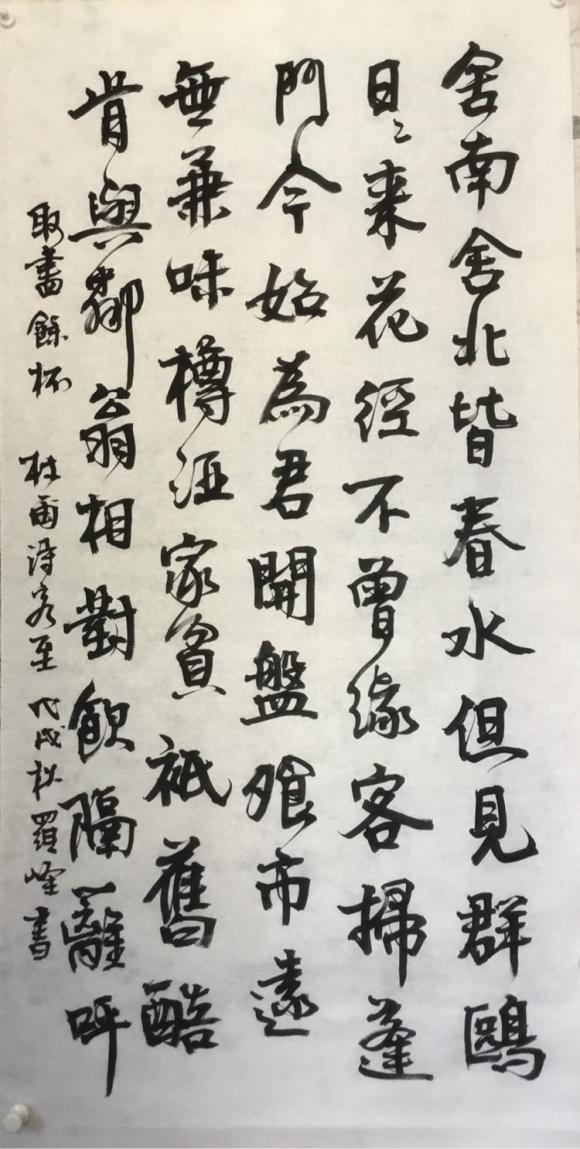 舍南舍北皆春水但見群鷗
日〻来花徑不曾緣客掃蓬
門今始為君開盤飧市遠
無兼味樽酒家貧衹舊醅
肯與鄰翁相對飲隔籬呼
取盡餘杯 杜甫詩客至 戊戌秋峰書